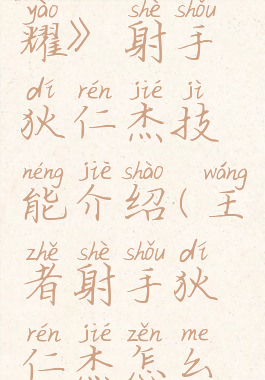 yào shè shǒu
耀》 射手
dí rén jié jì
狄仁杰技
néng jiè shào wáng
能介绍(王
zhě shè shǒu dí
者射手狄
rén jié zěn me
仁杰怎么